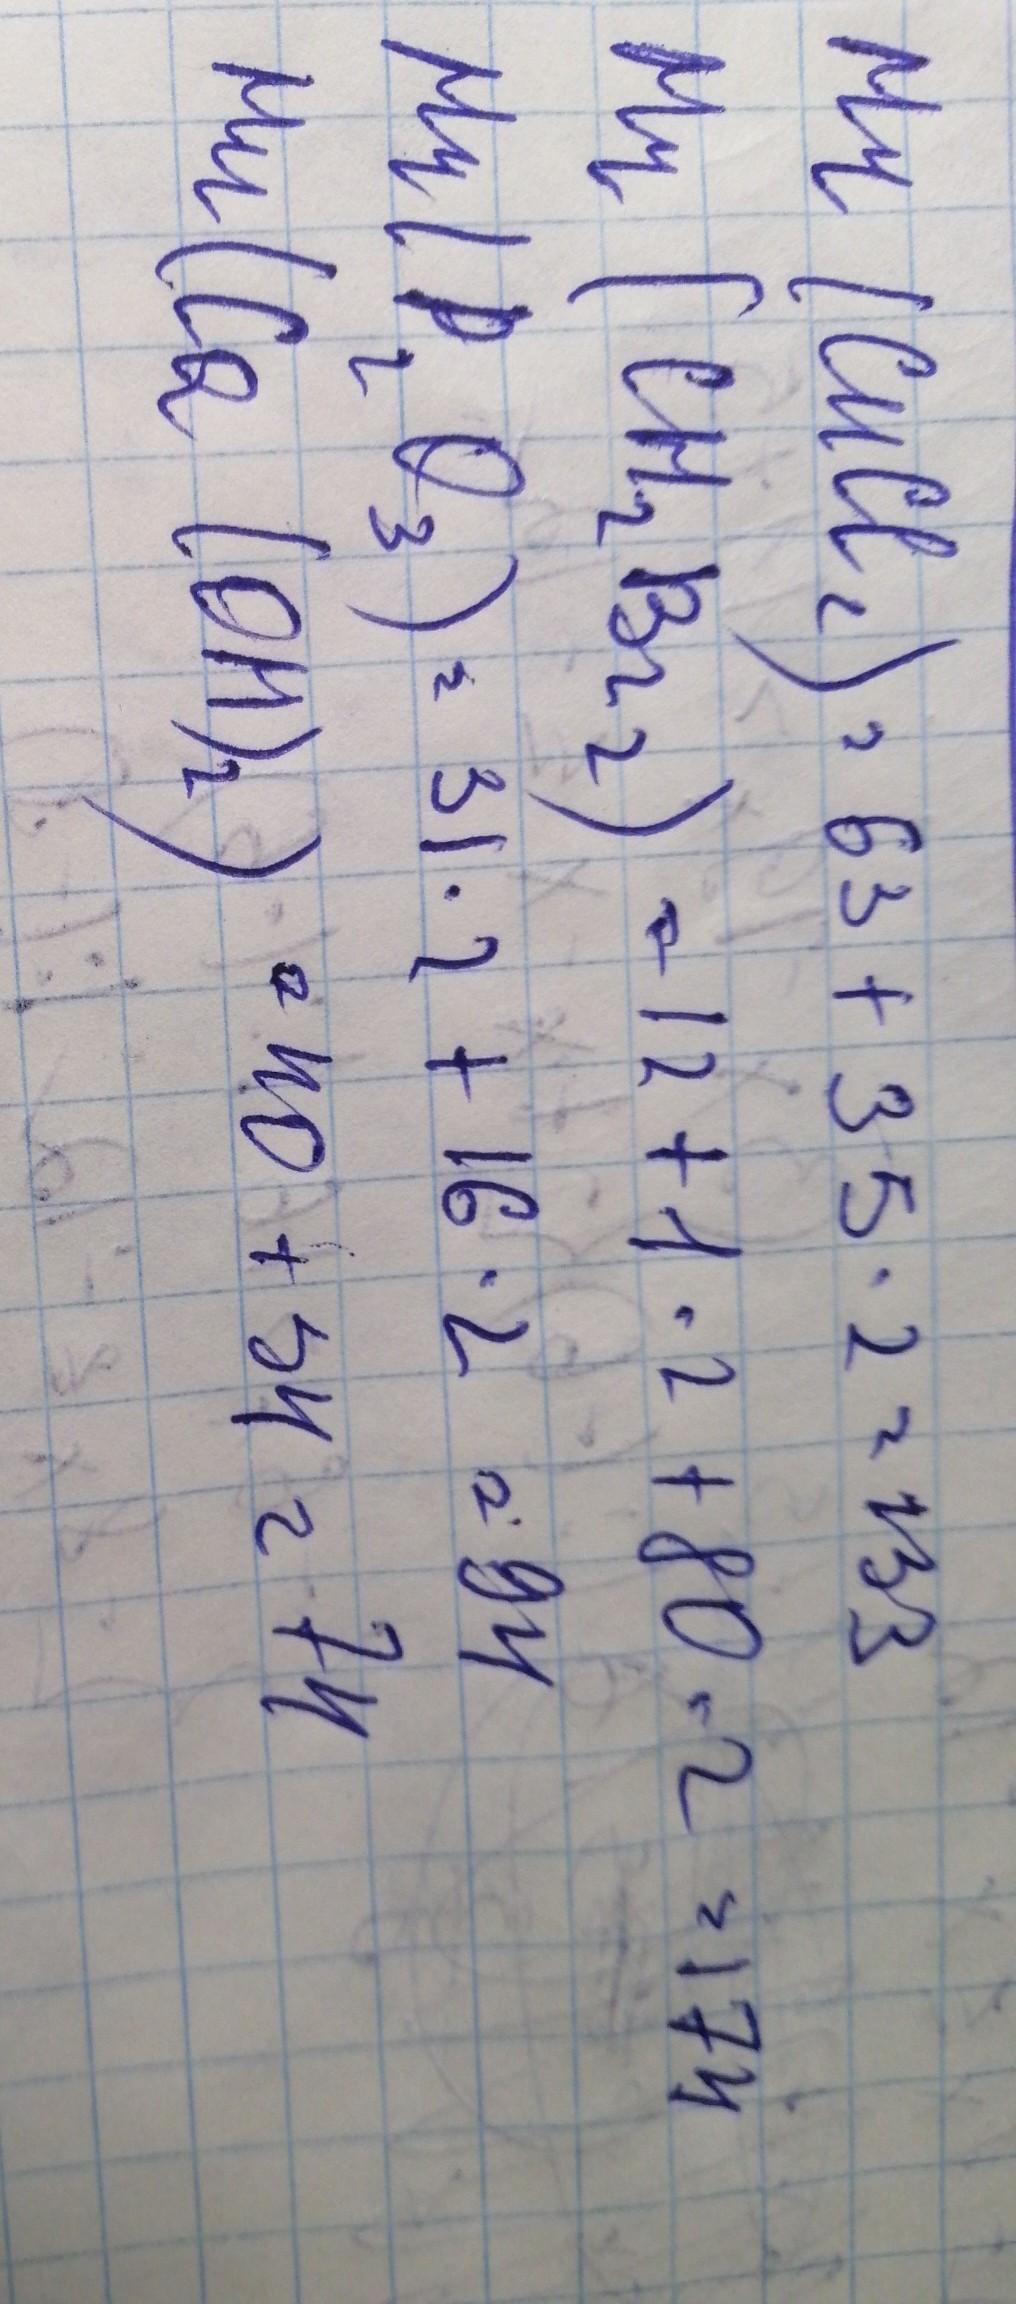 Mr (CuCl₂) = 63 + 35 · 2 = 133
Mr (CH₂Br₂) = 12 + 1 · 2 + 80 · 2 = 174
Mr (P₂O₃) = 31 · 2 + 16 · 2 = 94
Mr (Ca (OH)₂) = 40 + 34 = 74